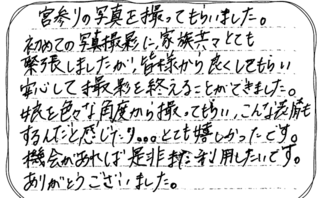 宮参りの写真を撮ってもらいました。
初めての写真撮影に、家族共々とても
緊張しましたが、皆様から良くしてもらい
安心して撮影を終えることができました。
娘を色々な角度から撮ってもらい、こんな表情も
するんだと感じたり…とても嬉しかったです。
機会があれば是非また利用したいです。
ありがとうございました。